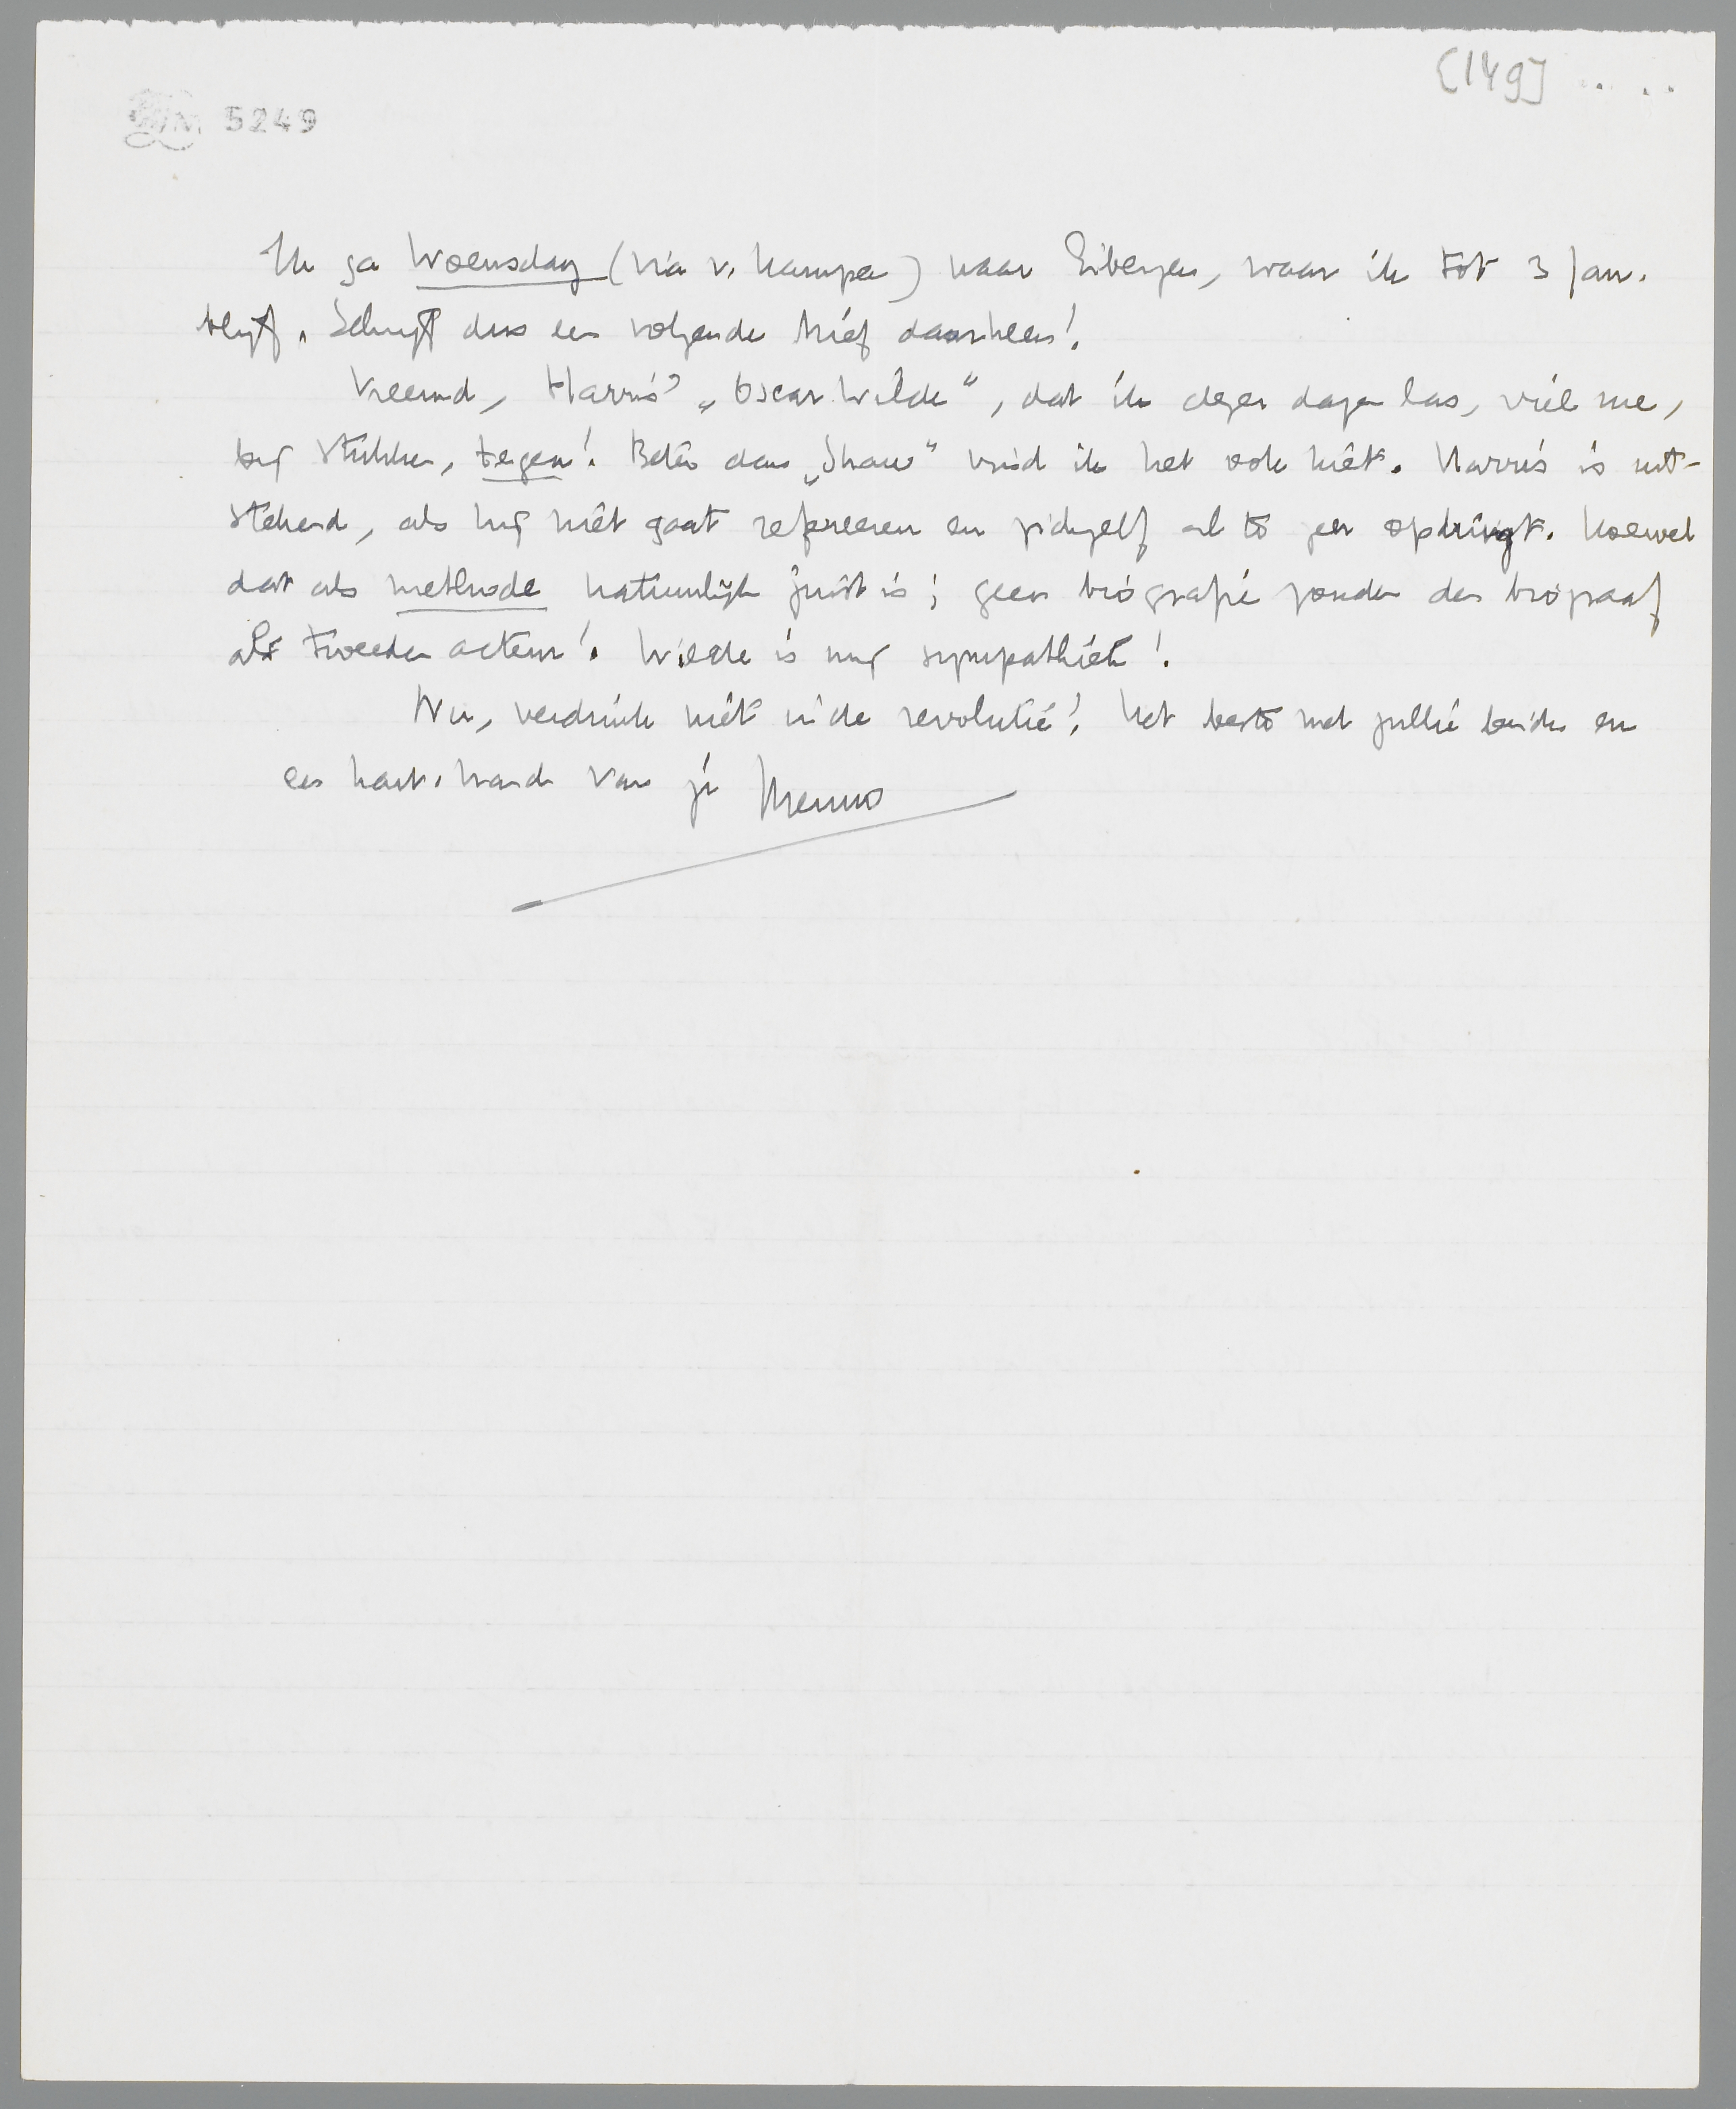 [149]
5249
Ik ga Woensdag (via v. Kampen) naar Eibergen, waar ik tot 3 Jan.
blijf. Schrijf dus een volgende brief daarheen!
Vreemd, Harris' „Oscar Wilde", dat ik dezer dagen las, viel me,
bij stukken, tegen! Beter dan „Shaw" vind ik het ook niet. Harris is uit-
stekend, als hij niet gaat refereeren en zichzelf al te zeer opdringt. Hoewel
dat als methode natuurlijk juist is; geen biografie zonder den biograaf
als tweeden acteur! Wilde is mij sympathiek!
Nu, verdrink niet in de revolutie! Het beste met jullie beiden en
een hart. hand van je Menno